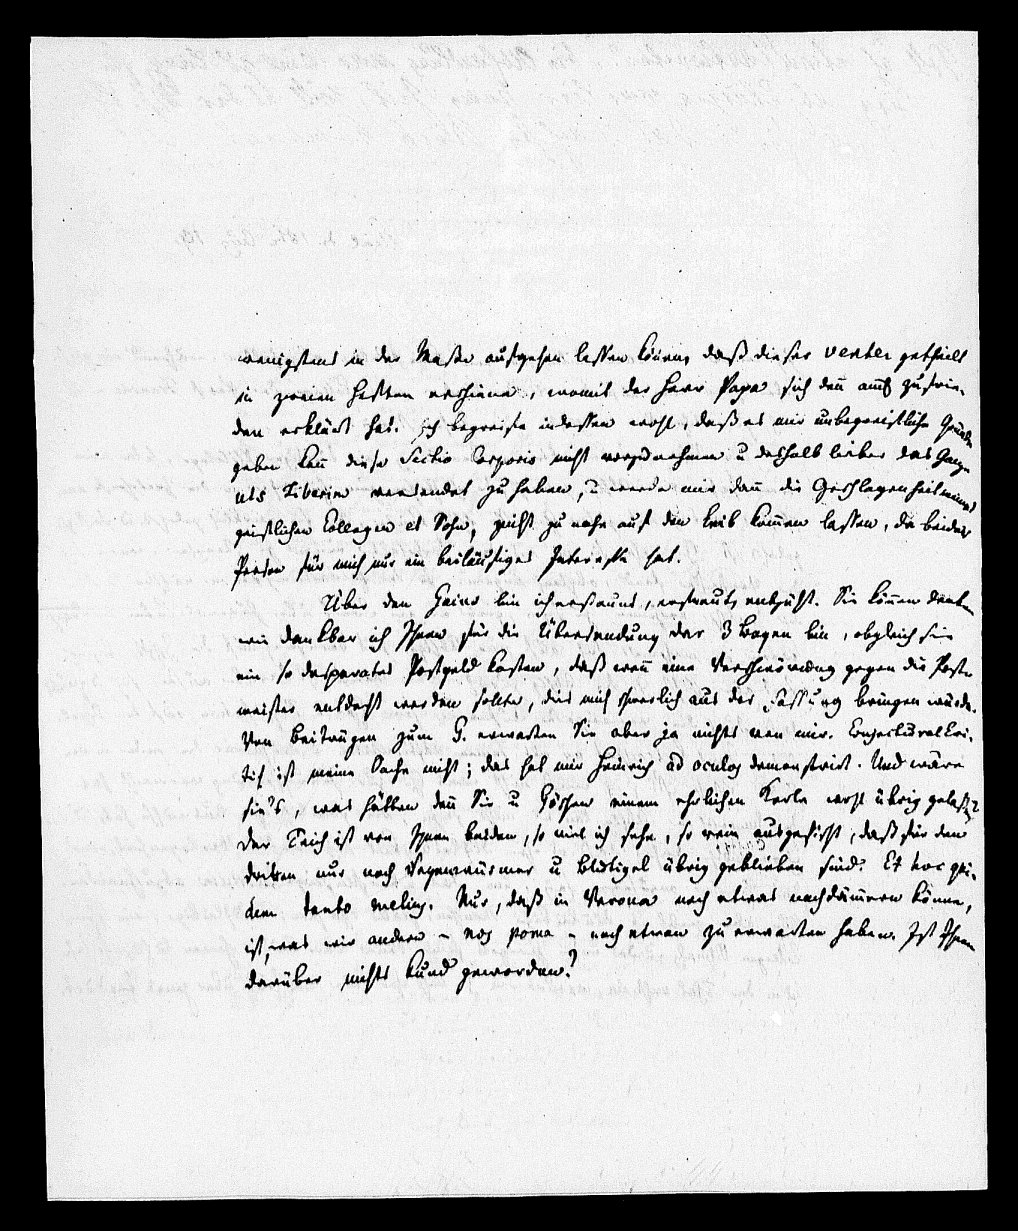 wenigstens in der Maße aufgehen lassen können, daß dieser venter getheilt
in zweien Heften erschiene, womit der Herr Papa sich denn auch zufrie-
den erklärt hat. Ich begreife indessen wohl, daß es nur unbegreifliche Gründe
geben kann diese Sectio Corporis nicht vorzunehmen u deshalb lieber das Ganze
als Tiberim versendet zu haben, u werde mir dann die Geschlagenheit meines
geistlichen Collegen et Sohn, nicht zu nahe auf den Leib kommen lassen, da beider
Person für mich nur ein beiläufiges Interesse hat.
Über den Gaius bin ich erstaunt, erfreut, entzückt. Sie können denken
wie dankbar ich Ihnen für die Übersendung der 3 Bogen bin, obgleich sie
ein so desperates Postgeld kosten, daß wenn eine Verschwörung gegen die Post-
meister entdeckt werden sollte, dies mich schwerlich aus der Fassung bringen würde.
Von Beiträgen zum G. erwarten Sie aber ja nichts von mir. Conjecturalcri-
tik ist meine Sache nicht; das hat mir Heinrich ad oculos demonstrirt. Und wäre
sie's, was hätten denn Sie u Göschen einem ehrlichen Kerle wohl übrig gelassen?
Der Teich ist von Ihnen beiden, so viel ich sehe, so rein ausgefischt, daß für den
dritten nur noch Regenwürmer u Blutigel übrig geblieben sind. Et hoc qui-
dem tanto melius. Nur, daß in Verona noch etwas nachdämmern könne,
ist, was wir andern – nos poma – noch etwan zu erwarten haben. Ist Ihnen
darüber nichts kund geworden?